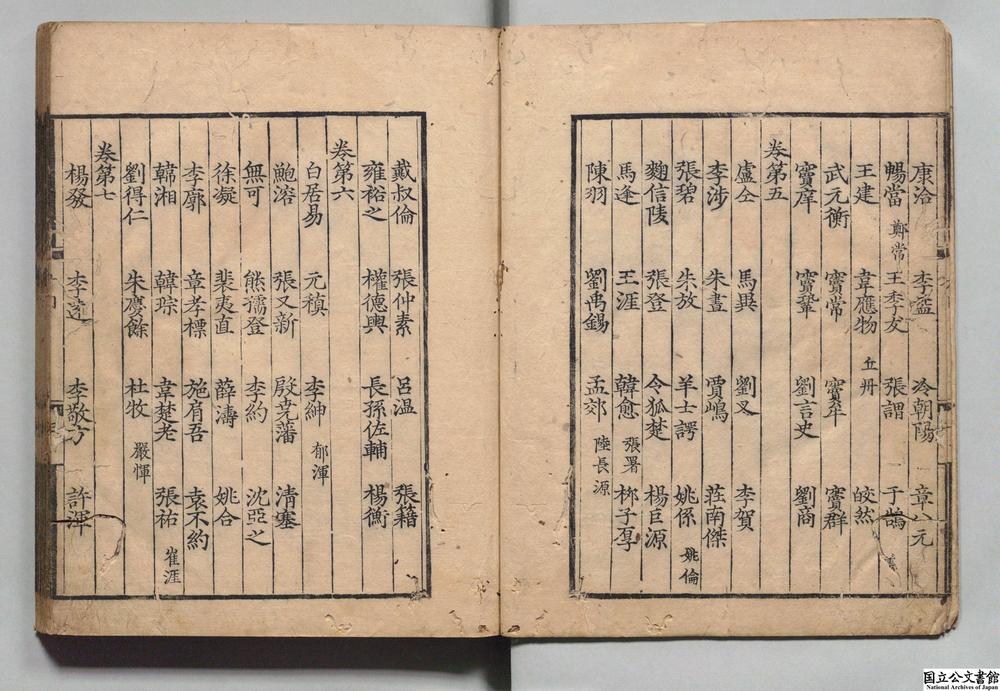 康洽 李益 冷朝陽 章八元
暢當 鄭常 王季友 張謂 于鵠
王建 韋應物 丘丹 皎然
武元衡 竇常 竇牟 竇群
竇庠 竇鞏 劉言史 劉商
卷第五
盧仝 馬異 劉叉 李賀
李涉 朱晝 賈嵨 莊南傑
張碧 朱放 羊士諤 姚係 姚倫
麴信陵 張登 令狐楚 楊巨源
馬逢 王涯 韓愈 張署 栁子厚
陳羽 劉禹錫 孟郊 陸長源
戴叔倫 張仲素 呂溫 張籍
雍裕之 權德輿 長孫佐輔 楊衡
卷第六
白居易 元稹 李紳 郁渾
鮑溶 張又新 殷堯藩 清塞
無可 熊孺登 李約 沈亞之
徐凝 裴夷直 薛濤 姚合
李廓 章孝標 施肩吾 袁不約
韓湘 韓琮 韋楚老 張祜 崔涯
劉得仁 朱慶餘 杜牧 嚴惲
卷第七
楊發 李遠 李敬方 許渾
国立公文書館
National Archives of Japan